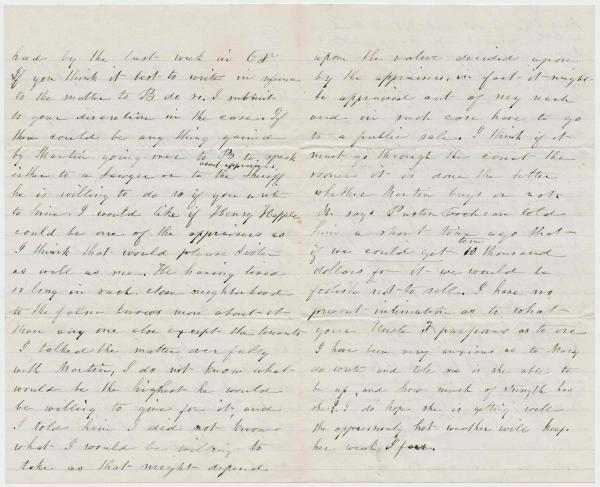 had by the last week in Oct
If you think it best to write in
to the matter to B do so. I submit
to your discretion in the case. If
there could be any thing gained
by Martin going over to B to speak
about appraisers
either to a Lawyer or to the Sheriff
he is willing to do so if you write
to him. I would like if Henry Hopple
could be one of the appraisers as
I think that would please Sister
as well as me. He having lived
so long in such close neighborhood
to the place knows more about it
than any one else except the tenants
I talked the matter over fully
with Martin, I do not know what
would be the highest he would
be willing to give for it, and
I told him I did not know
what I would be willing to
take as that might depend
upon the value decided upon
by the appraisers, in fact it might
be appraised out of my reach
and in such case have to go
to a public sale. I think if it
must go through the court the
sooner it is done the better
whether Martin buys or not.
M. says Cochran told
him a short time ago that
if we could get ten thousand
dollars for it we would be
foolish not to sell. I have no
present intimation as to what
your Uncle F purposes as to
I have been very anxious as to Mary
do write and tell me is she able to
be up, and how much of strength has
she? I do hope she is getting well
the oppressively hot weather will keep
her weak, I fear.